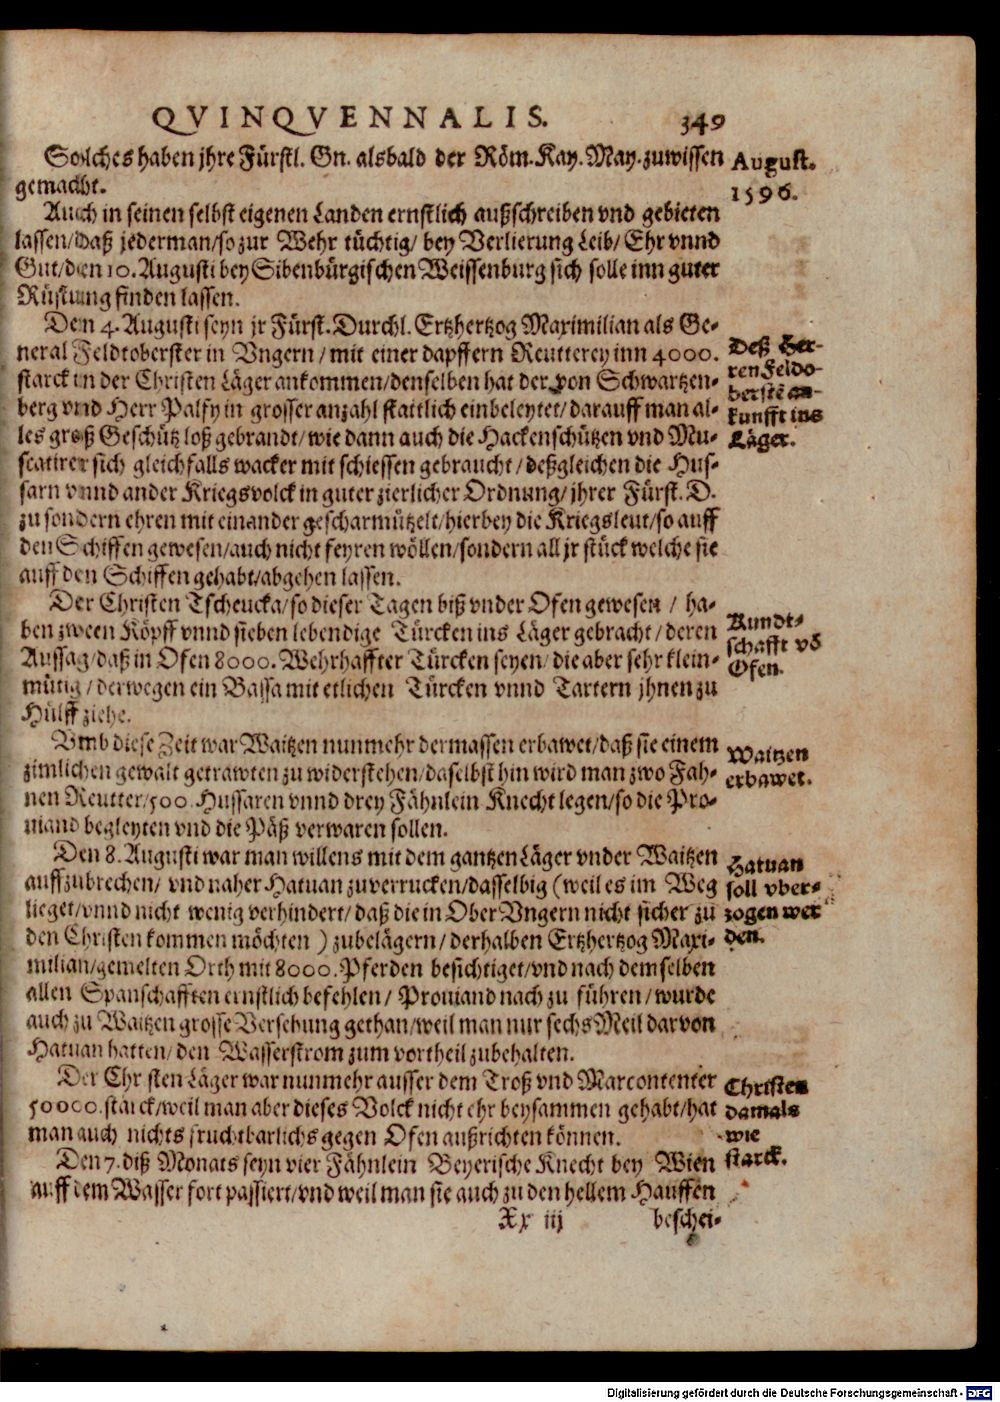 QVINQVENNALIS. 349
Solches haben jhre Fürstl. Gn. alsbald der Röm. Kay. May. zuwissen
gemacht.
August.
1596.
Auch in seinen selbst eigenen Landen ernstlich außschreiben vnd gebieten
lassen/daß jederman/so zur Wehr tüchtig/ bey Verlierung Leib/ Ehr vnnd
Gut/den 10. Augusti bey Sibenbürgischen Weissenburg sich solle inn guter
Rüstung finden lassen.
Den 4. Augusti seyn jr Fürst. Durchl. Ertzhertzog Maximilian als Ge-
neral Feldtoberster in Vngern/ mit einer dapffern Reutterey inn 4000.
starck in der Christen Läger ankommen/denselben hat der von Schwartzen-
berg vnd Herr Palfy in grosser anzahl stattlich einbeleytet/darauff man al-
les groß Geschütz loß gebrandt/wie dann auch die Hackenschützen vnd Mu-
scatirer sich gleichfalls wacker mit schiessen gebraucht/deßgleichen die Hus-
sarn vnnd ander Kriegsvolck in guter zierlicher Ordnung/jhrer Fürst. D.
zu sondern ehren mit einander gescharmützelt/hierbey die Kriegsleut/so auff
den Schiffen gewesen/auch nicht feyren wöllen/sondern all jr stück welche sie
auff den Schiffen gehabt/abgehen lassen.
Deß Her-
ren Feldo-
berstē an-
kunfft ins
Läger.
Der Christen Tscheucka/so dieser Tagen biß vnder Ofen gewesen/ ha-
ben zween Köpff vnnd sieben lebendige Türcken ins Läger gebracht/deren
Aussag/daß in Ofen 8000. Wehrhaffter Türcken seyen/die aber sehr klein-
mütig/derwegen ein Bassa mit etlichen Türcken vnnd Tartern jhnen zu
Hülff ziehe.
Kundt-
schafft vō
Ofen.
Vmb diese Zeit war Waitzen nunmehr dermassen erbawet/daß sie einem
zimlichen gewalt getrawten zu widerstehen/daselbst hin wird man zwo Fah-
nen Reutter/500. Hussaren vnnd drey Fähnlein Knecht legen/so die Pro-
uiand begleyten vnd die Päß verwaren sollen.
Waitzen
erbawet.
Den 8. Augusti war man willens mit dem gantzen Läger vnder Waitzen
auffzubrechen/ vnd naher Hatuan zuverrucken/dasselbig (weil es im Weg
lieget/vnnd nicht wenig verhindert/daß die in Ober Vngern nicht sicher zu
den Christen kommen möchten) zubelägern/derhalben Ertzhertzog Maxi-
milian/gemelten Orth mit 8000. Pferden besichtiget/vnd nach demselben
allen Spanschafften ernstlich befehlen/ Prouiand nach zu führen/wurde
auch zu Waitzen grosse Versehung gethan/weil man nur sechs Meil darvon
Hatuan hatten/den Wasserstrom zum vortheil zubehalten.
Hatuan
soll vber-
zogen wer
den.
Der Christen Läger war nunmehr ausser dem Troß vnd Marcontenter
50000. starck/weil man aber dieses Volck nicht ehr beysammen gehabt/hat
man auch nichts fruchtbarlichs gegen Ofen außrichten können.
Christen
damals
wie
starck.
Den 7. diß Monats seyn vier Fähnlein Beyerische Knecht bey Wien
auff dem Wasser fort passiert/vnd weil man sie auch zu den hellem Hauffen
Xx iij beschei-
Digitalisierung gefördert durch die Deutsche Forschungsgemeinschaft - DFG